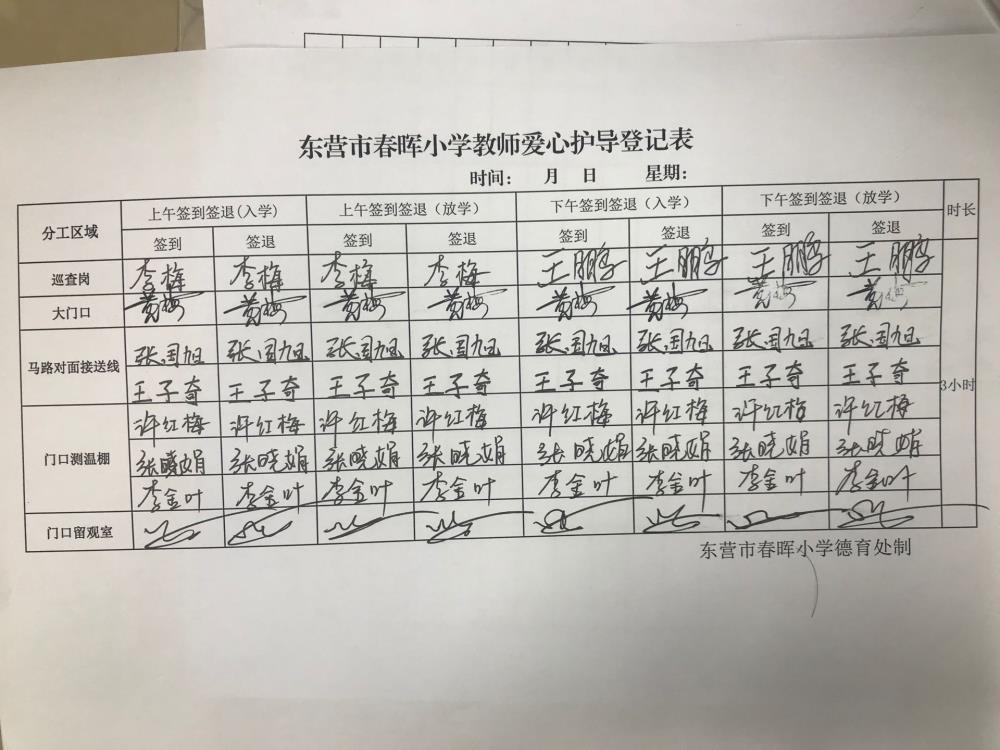 东营市春晖小学教师爱心护导登记表
时间： 月 日 星期：
分工区域 上午签到签退(入学) 上午签到签退（放学） 下午签到签退（入学） 下午签到签退（放学） 时长
签到 签退 签到 签退 签到 签退 签到 签退
巡查岗 李梅 李梅 李梅 李梅 王鹏 王鹏 王鹏 王鹏
大门口 黄梅 黄梅 黄梅 黄梅 黄梅 黄梅 黄梅 黄梅
马路对面接送线 张国旭 张国旭 张国旭 张国旭 张国旭 张国旭 张国旭 张国旭
王子奇 王子奇 王子奇 王子奇 王子奇 王子奇 王子奇 王子奇
3小时
门口测温棚 许红梅 许红梅 许红梅 许红梅 许红梅 许红梅 许红梅 许红梅
张晓娟 张晓娟 张晓娟 张晓娟 张晓娟 张晓娟 张晓娟 张晓娟
李金叶 李金叶 李金叶 李金叶 李金叶 李金叶 李金叶 李金叶
门口留观室
东营市春晖小学德育处制